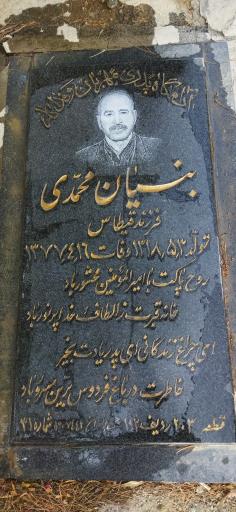 بنیان محمدی
فرزند قیطاس
تولد ۱۳۱۸٫۵٫۳ وفات ۱۳۷۷٫۴٫۱۶
روح پاکت با امیرالمؤمنین محشور باد
خانه قبرت ز الطاف خدا پر نور باد
ای چراغ زندگانی ای پدر یادت بخیر
خاطرت در باغ فردوس برین مسرور باد
قطعه ۲۰۳ ردیف ۱۱۲ شماره ۴۱